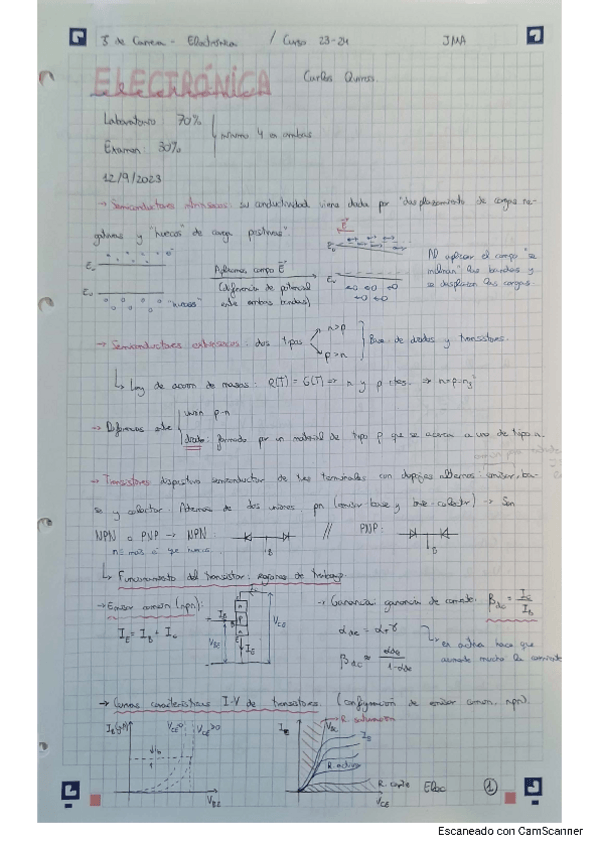 3º de Carrera - Electrónica / Curso 23-24 JMA
ELECTRÓNICA Carlos Quiros.
Laboratorio: 70%
Examen: 30%
mínimo 4 en ambas
12/9/2023
→ Semiconductores intrínsecos: su conductividad viene dada por "desplazamiento de cargas ne-
gativas y "huecos" de carga positivas"
Aplicamos campo E
(diferencia de potencial
entre ambas bandas)
"huecos"
Al aplicar el campo "se
inclinan" las bandas y
se desplazan las cargas.
→ Semiconductores extrínsecos: dos tipos n>p
p>n
Base de diodos y transistores.
↳ Ley de acción de masas: R(T) = G(T) ⇒ n y p ctes. ⇒ n·p=ni²
→ Diferencias entre unión p-n
diodo: formado por un material de tipo p que se acerca a uno de tipo n.
→ Transistores dispositivo semiconductor de tres terminales con dopajes alternos: emisor, ba-
se y colector. Además de dos uniones pn (emisor-base y base-colector) → Son
NPN o PNP → NPN: // PNP:
B B
↳ Funcionamiento del transistor: regiones de trabajo.
→ Emisor común (npn):
I_E = I_B + I_C
V_BE V_CE
→ Ganancia: ganancia de corriente: β_dc = I_C / I_B
β_dc = α_dc / 1-α_dc
en activa hace que
aumente mucho la corriente
→ Curvas características I-V de transistores. (configuración de emisor común, npn).
I_B(μA) V_CE=0 V_CE>0
V_BE
R. saturación
I_B
R. activa
R. corte
V_CE
Elec 1
Escaneado con CamScanner